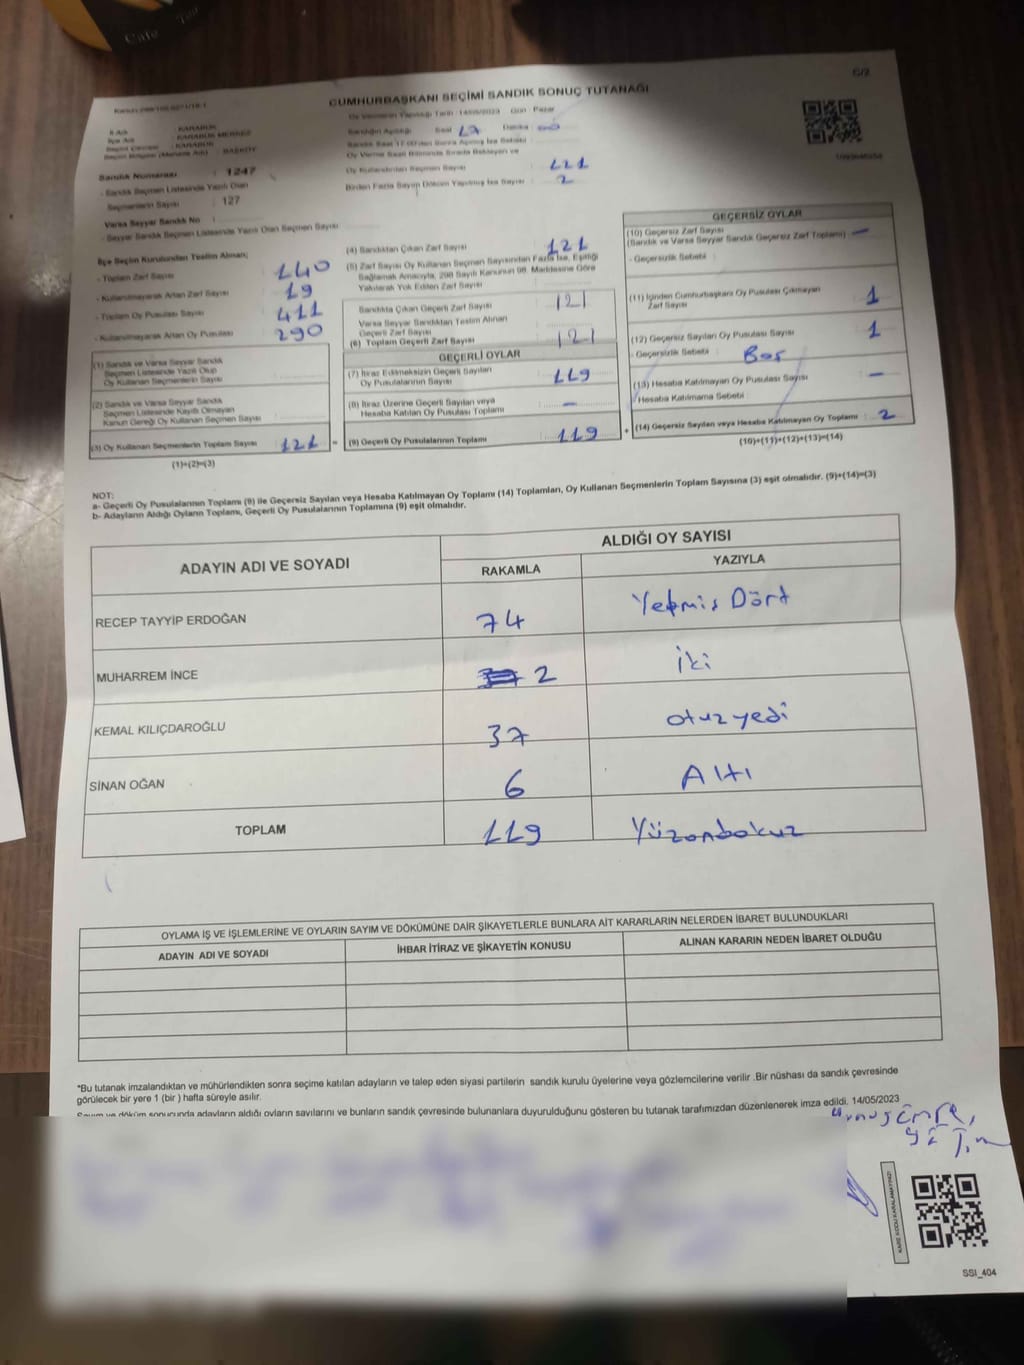 Cafe
C/2
CUMHURBAŞKANI SEÇİMİ SANDIK SONUÇ TUTANAĞI
Oy Vermenin Yapıldığı Tarih : 14/05/2023 Gün : Pazar
İli Adı : KARABÜK
İlçe Adı : KARABÜK MERKEZ
Seçim Çevresi : KARABÜK
Seçim Bölgesi (Muhtarlık Adı) : BAŞKÖY
Sandık Numarası : 1247
- Sandık Seçmen Listesinde Yazılı Olan
Seçmenlerin Sayısı : 127
Varsa Seyyar Sandık No :
- Seyyar Sandık Seçmen Listesinde Yazılı Olan Seçmen Sayısı
Sandığın Açıldığı Saat 17 Dakika 00
Sandık Saat 17.00'den Sonra Açılmış İse Sebebi :
Oy Verme Saati Bitiminde Sırada Bekleyen ve
Oy Kullandırılan Seçmen Sayısı 121
Birden Fazla Sayım Döküm Yapılmış İse Sayısı : 2
İlçe Seçim Kurulundan Teslim Alınan;
- Toplam Zarf Sayısı 140
- Kullanılmayarak Artan Zarf Sayısı : 19
- Toplam Oy Pusulası Sayısı : 411
- Kullanılmayarak Artan Oy Pusulası 290
(1) Sandık ve Varsa Seyyar Sandık
Seçmen Listesinde Yazılı Olup
Oy Kullanan Seçmenlerin Sayısı
(2) Sandık ve Varsa Seyyar Sandık
Seçmen Listesinde Kayıtlı Olmayan
Kanun Gereği Oy Kullanan Seçmen Sayısı
(3) Oy Kullanan Seçmenlerin Toplam Sayısı : 121 =
(1)+(2)=(3)
(4) Sandıktan Çıkan Zarf Sayısı 121
(5) Zarf Sayısı Oy Kullanan Seçmen Sayısından Fazla İse, Eşitliği
Sağlamak Amacıyla, 298 Sayılı Kanunun 98. Maddesine Göre
Yakılarak Yok Edilen Zarf Sayısı
Sandıkta Çıkan Geçerli Zarf Sayısı 121
Varsa Seyyar Sandıktan Teslim Alınan
Geçerli Zarf Sayısı
(6) Toplam Geçerli Zarf Sayısı 121
GEÇERLİ OYLAR
(7) İtiraz Edilmeksizin Geçerli Sayılan
Oy Pusulalarının Sayısı 119
(8) İtiraz Üzerine Geçerli Sayılan veya
Hesaba Katılan Oy Pusulası Toplamı : –
(9) Geçerli Oy Pusulalarının Toplamı : 119 +
GEÇERSİZ OYLAR
(10) Geçersiz Zarf Sayısı
(Sandık ve Varsa Seyyar Sandık Geçersiz Zarf Toplamı) –
- Geçersizlik Sebebi :
(11) İçinden Cumhurbaşkanı Oy Pusulası Çıkmayan
Zarf Sayısı 1
(12) Geçersiz Sayılan Oy Pusulası Sayısı : 1
- Geçersizlik Sebebi : Boş
(13) Hesaba Katılmayan Oy Pusulası Sayısı –
Hesaba Katılmama Sebebi :
(14) Geçersiz Sayılan veya Hesaba Katılmayan Oy Toplamı : 2
(10)+(11)+(12)+(13)=(14)
NOT:
a- Geçerli Oy Pusulalarının Toplamı (9) ile Geçersiz Sayılan veya Hesaba Katılmayan Oy Toplamı (14) Toplamları, Oy Kullanan Seçmenlerin Toplam Sayısına (3) eşit olmalıdır. (9)+(14)=(3)
b- Adayların Aldığı Oyların Toplamı, Geçerli Oy Pusulalarının Toplamına (9) eşit olmalıdır.
ADAYIN ADI VE SOYADI ALDIĞI OY SAYISI
RAKAMLA YAZIYLA
RECEP TAYYİP ERDOĞAN 74 Yetmiş Dört
MUHARREM İNCE 2 İki
KEMAL KILIÇDAROĞLU 37 otuzyedi
SİNAN OĞAN 6 Altı
TOPLAM 119 Yüzondokuz
OYLAMA İŞ VE İŞLEMLERİNE VE OYLARIN SAYIM VE DÖKÜMÜNE DAİR ŞİKAYETLERLE BUNLARA AİT KARARLARIN NELERDEN İBARET BULUNDUKLARI
ADAYIN ADI VE SOYADI İHBAR İTİRAZ VE ŞİKAYETİN KONUSU ALINAN KARARIN NEDEN İBARET OLDUĞU
*Bu tutanak imzalandıktan ve mühürlendikten sonra seçime katılan adayların ve talep eden siyasi partilerin sandık kurulu üyelerine veya gözlemcilerine verilir .Bir nüshası da sandık çevresinde
görülecek bir yere 1 (bir ) hafta süreyle asılır.
Sayım ve döküm sonucunda adayların aldığı oyların sayılarını ve bunların sandık çevresinde bulunanlara duyurulduğunu gösteren bu tutanak tarafımızdan düzenlenerek imza edildi. 14/05/2023
KARE KODU KARALAMAYINIZ!
SSI_404